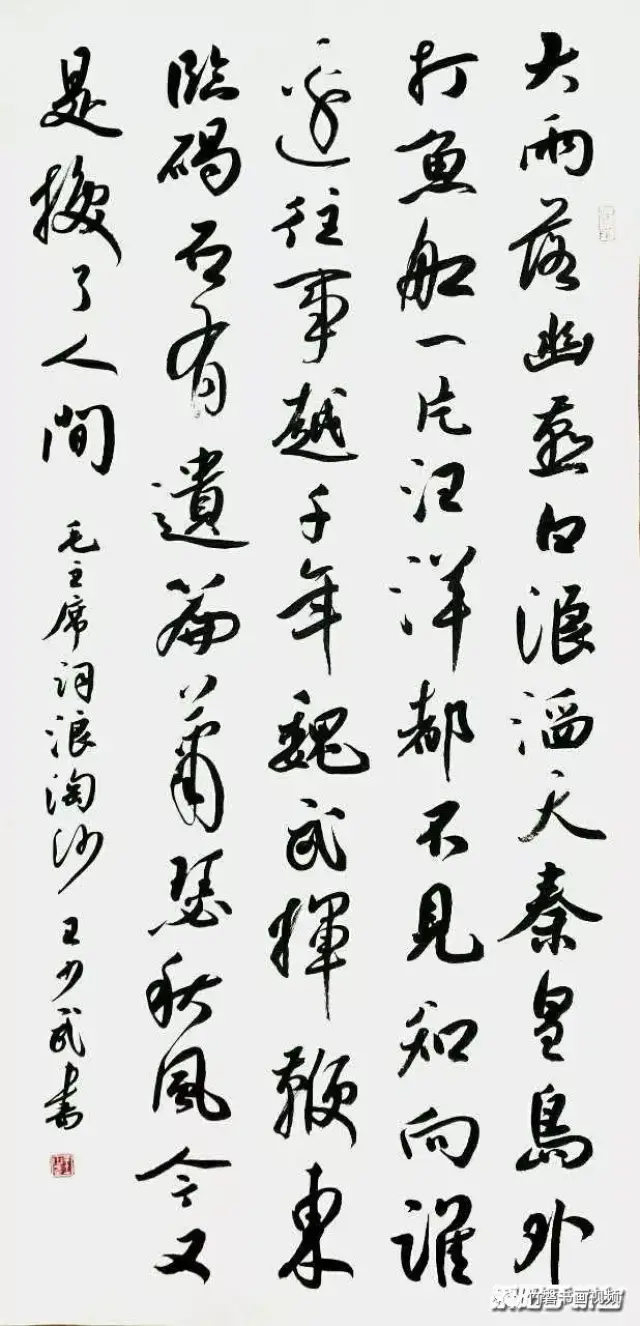 大雨落幽燕白浪滔天秦皇島外
打魚船一片汪洋都不見知向誰
邊往事越千年魏武揮鞭東
臨碣石有遺篇蕭瑟秋風今又
是換了人間
毛主席詞浪淘沙 王少武書
书画视频